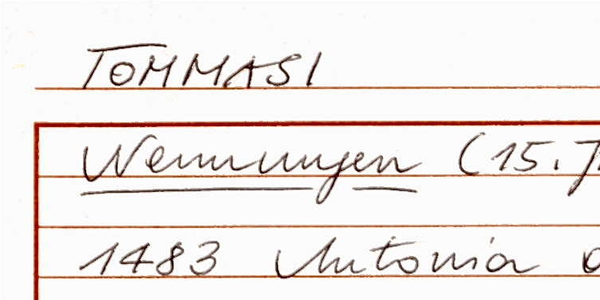 TOMMASI
Nennungen (15. J
1483 Antonia